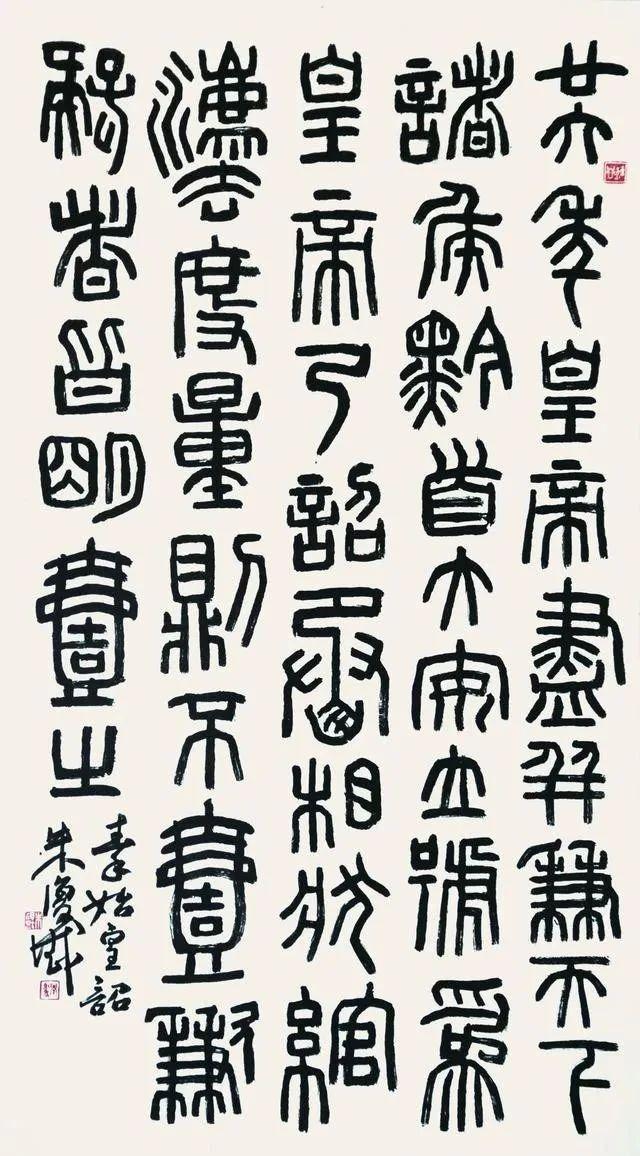 廿六年皇帝盡并兼天下
諸侯黔首大安立號為
皇帝乃詔丞相狀綰
灋法度量則不壹歉
疑者皆明壹之
秦始皇詔
朱復戡